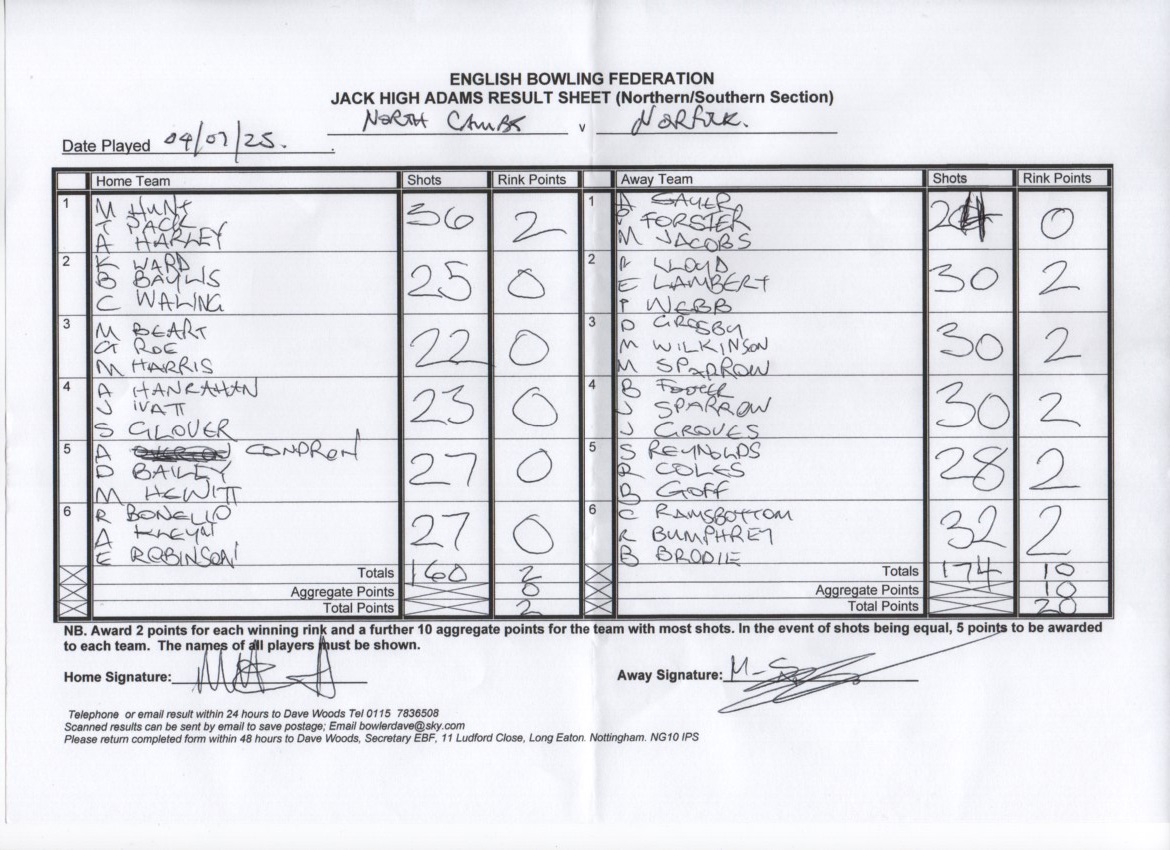 ENGLISH BOWLING FEDERATION
JACK HIGH ADAMS RESULT SHEET (Northern/Southern Section)
NORTH CAMBS v NORFOLK.
Date Played 04/07/25.
Home Team Shots Rink Points Away Team Shots Rink Points
1 M HUNT 36 2 1 A SAYER 24 0
T PACK FORSTER
A HARLEY M JACOBS
2 K WARD 25 0 2 R LLOYD 30 2
B BAYLIS E LAMBERT
C WALING P WEBB
3 M BEART 22 0 3 D CROSBY 30 2
G ROE M WILKINSON
M HARRIS M SPARROW
4 A HANRAHAN 23 0 4 B 30 2
J IVATT J SPARROW
S GLOVER J GROVES
5 A CONDRON 27 0 5 S REYNOLDS 28 2
D BAILEY R COLES
M HEWITT B GOFF
6 R BONELLO 27 0 6 C RAMSBOTTOM 32 2
A KLEYN R BUMPHREY
E ROBINSON B BRODIE
Totals 160 2 Totals 174 10
Aggregate Points 0 Aggregate Points 10
Total Points 2 Total Points 20
NB. Award 2 points for each winning rink and a further 10 aggregate points for the team with most shots. In the event of shots being equal, 5 points to be awarded
to each team. The names of all players must be shown.
Home Signature: Away Signature: M-S
Telephone or email result within 24 hours to Dave Woods Tel 0115 7836508
Scanned results can be sent by email to save postage; Email bowlerdave@sky.com
Please return completed form within 48 hours to Dave Woods, Secretary EBF, 11 Ludford Close, Long Eaton. Nottingham. NG10 IPS